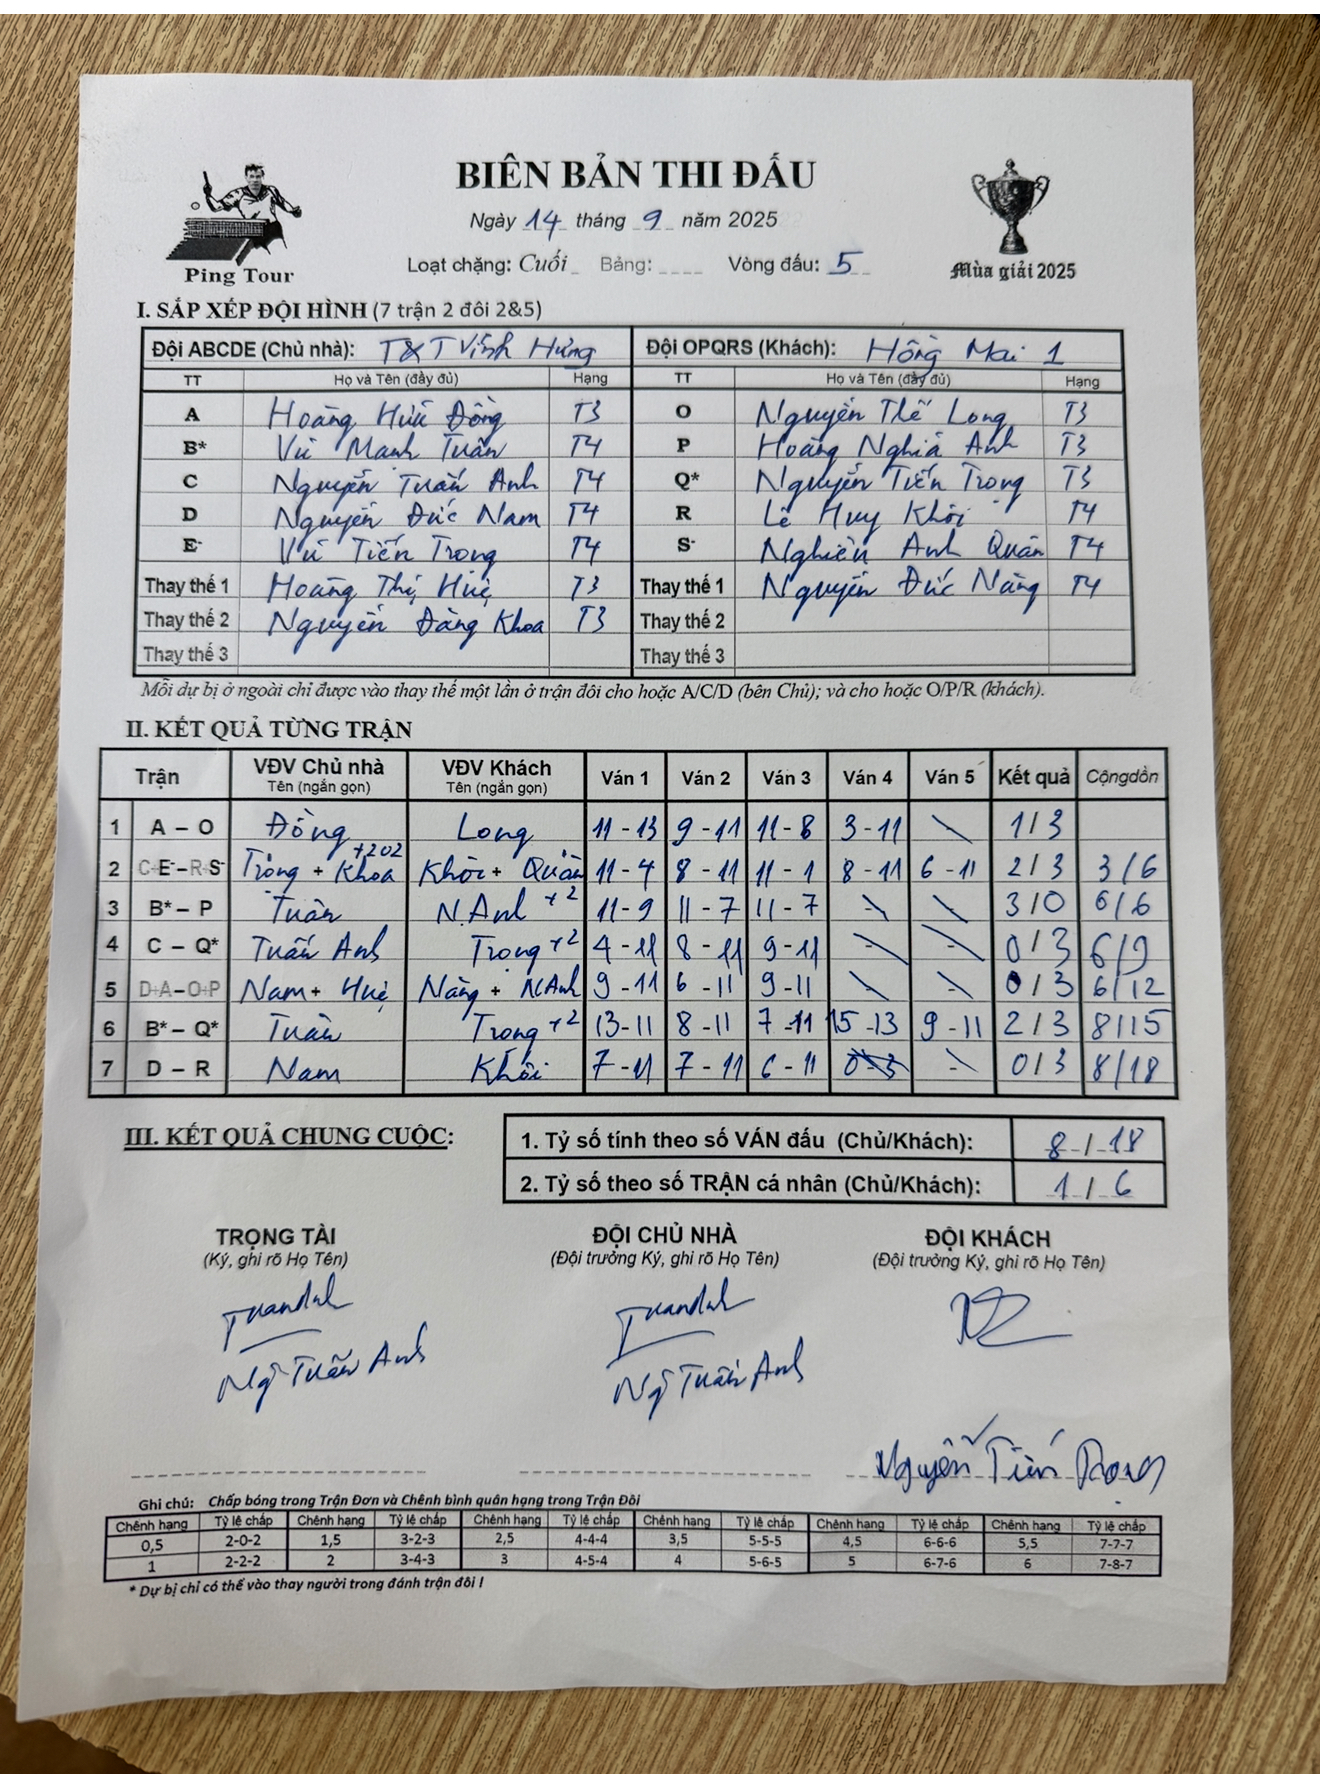 BIÊN BẢN THI ĐẤU
Ngày 14 tháng 9 năm 2025
Ping Tour
Loạt chặng: Cuối Bảng: Vòng đấu: 5
Mùa giải 2025
I. SẮP XẾP ĐỘI HÌNH (7 trận 2 đôi 2&5)
Đội ABCDE (Chủ nhà): T&T Vĩnh Hưng Đội OPQRS (Khách): Hồng Mai 1
TT Họ và Tên (đầy đủ) Hạng TT Họ và Tên (đầy đủ) Hạng
A Hoàng Hữu Đồng T3 O Nguyễn Thế Long T3
B* Vũ Mạnh Tuân T4 P Hoàng Nghĩa Anh T3
C Nguyễn Tuấn Anh T4 Q* Nguyễn Tiến Trọng T3
D Nguyễn Đức Nam T4 R Lê Huy Khôi T4
E- Vũ Tiến Trọng T4 S- Nghiên Anh Quân T4
Thay thế 1 Hoàng Thị Huệ T3 Thay thế 1 Nguyễn Đức Năng T4
Thay thế 2 Nguyễn Đăng Khoa T3 Thay thế 2
Thay thế 3 Thay thế 3
Mỗi dự bị ở ngoài chỉ được vào thay thế một lần ở trận đôi cho hoặc A/C/D (bên Chủ); và cho hoặc O/P/R (khách).
II. KẾT QUẢ TỪNG TRẬN
Trận VĐV Chủ nhà VĐV Khách Ván 1 Ván 2 Ván 3 Ván 4 Ván 5 Kết quả Cộngdồn
Tên (ngắn gọn) Tên (ngắn gọn)
1 A – O Đồng Long 11-13 9-11 11-8 3-11 \ 1/3
2 C+E-–R+S- Trọng + Khoa +202 Khôi + Quân 11-4 8-11 11-1 8-11 6-11 2/3 3/6
3 B* – P Tuân N.Anh +2 11-9 11-7 11-7 \ \ 3/0 6/6
4 C – Q* Tuấn Anh Trọng +2 4-11 8-11 9-11 \ \ 0/3 6/9
5 D+A–O+P Nam + Huệ Năng + N.Anh 9-11 6-11 9-11 \ \ 0/3 6/12
6 B* – Q* Tuân Trọng +2 13-11 8-11 7-11 15-13 9-11 2/3 8/15
7 D – R Nam Khôi 7-11 7-11 6-11 0-3 \ 0/3 8/18
III. KẾT QUẢ CHUNG CUỘC:
1. Tỷ số tính theo số VÁN đấu (Chủ/Khách): 8 / 18
2. Tỷ số theo số TRẬN cá nhân (Chủ/Khách): 1 / 6
TRỌNG TÀI ĐỘI CHỦ NHÀ ĐỘI KHÁCH
(Ký, ghi rõ Họ Tên) (Đội trưởng Ký, ghi rõ Họ Tên) (Đội trưởng Ký, ghi rõ Họ Tên)
Tuandnh Tuandnh
Ng Tuấn Anh Ng Tuấn Anh
Nguyễn Tiến Trọng
Ghi chú: Chấp bóng trong Trận Đơn và Chênh bình quân hạng trong Trận Đôi
Chênh hạng Tỷ lệ chấp Chênh hạng Tỷ lệ chấp Chênh hạng Tỷ lệ chấp Chênh hạng Tỷ lệ chấp Chênh hạng Tỷ lệ chấp Chênh hạng Tỷ lệ chấp
0,5 2-0-2 1,5 3-2-3 2,5 4-4-4 3,5 5-5-5 4,5 6-6-6 5,5 7-7-7
1 2-2-2 2 3-4-3 3 4-5-4 4 5-6-5 5 6-7-6 6 7-8-7
* Dự bị chỉ có thể vào thay người trong đánh trận đôi !